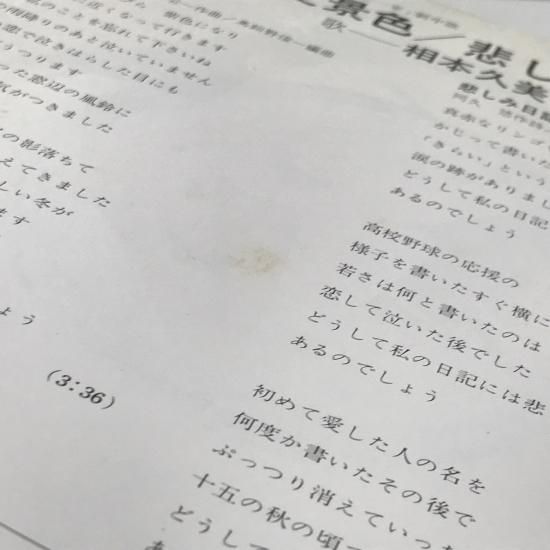 景色/悲し
歌 相本久美
作曲/ 編曲
近くなって行きます
私のことを忘れて下さいね
雨降りのあと泣いていません
恋で泣きはらした目にも
うつります
った窓辺の風鈴に
気がつきました
の影落ちて
えてきました
しい冬が
ます
ょう
(3:36)
悲しみ日記
真赤なリンゴ
かじって書いた
「きらい」という
涙の跡がありまし
どうして私の日記
あるのでしょう
高校野球の応援の
様子を書いたすぐ横に
若さは何と書いたのは
恋して泣いた後でした
どうして私の日記には悲
あるのでしょう
初めて愛した人の名を
何度か書いたその後で
ぷっつり消えていっ
十五の秋の頃
どうして
あ